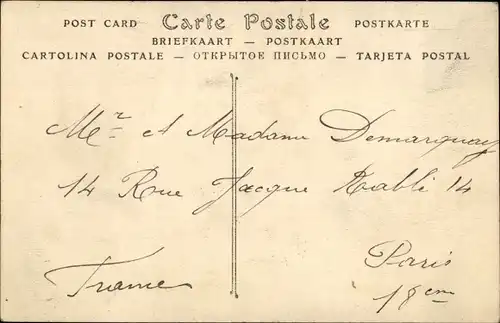 POST CARD Carte Postale POSTKARTE
BRIEFKAART — POSTKAART
CARTOLINA POSTALE — ОТКРЫТОЕ ПИСЬМО — TARJETA POSTAL
Mr et Madame Demarquay
14 Rue Jacque Kablé 14
Paris
France
18em